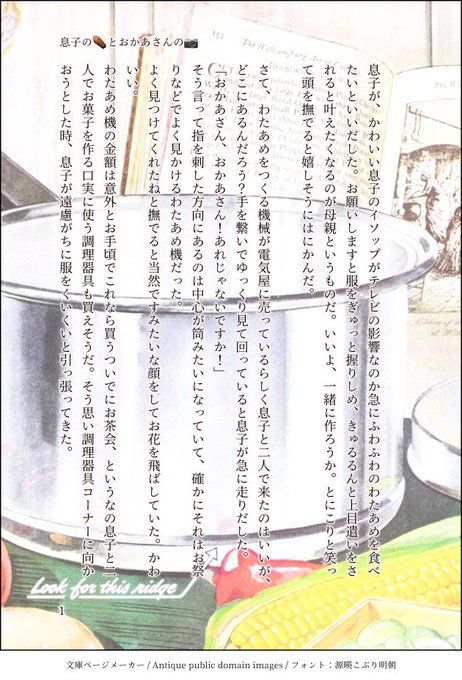 息子の🥖とおかあさんの📷
息子が、かわいい息子のイソップがテレビの影響なのか急にふわふわのわたあめを食べ
たいといいだした。お願いしますと服をぎゅっと握りしめ、きゅるるんと上目遣いをさ
れると叶えたくなるのが母親というものだ。いいよ、一緒に作ろうか。とにこりと笑っ
て頭を撫でると嬉しそうにはにかんだ。
さて、わたあめをつくる機械が電気屋に売っているらしく息子と二人で来たのはいいが、
どこにあるんだろう？手を繋いでゆっくり見て回っていると息子が急に走りだした。
「おかあさん、おかあさん！あれじゃないですか！」
そう言って指を刺した方向にあるのは中心が筒みたいになっていて、確かにそれはお祭
りなどでよく見かけるわたあめ機だった。
よく見つけてくれたねと撫でると当然ですみたいな顔をしてお花を飛ばしていた。かわ
いい。
わたあめ機の金額は意外とお手頃でこれなら買うついでにお茶会、というなの息子と二
人でお菓子を作る口実に使う調理器具も買えそうだ。そう思い調理器具コーナーに向か
おうとした時、息子が遠慮がちに服をくいくいと引っ張ってきた。
Look for this ridge
1
文庫ページメーカー / Antique public domain images / フォント：源暎こぶり明朝